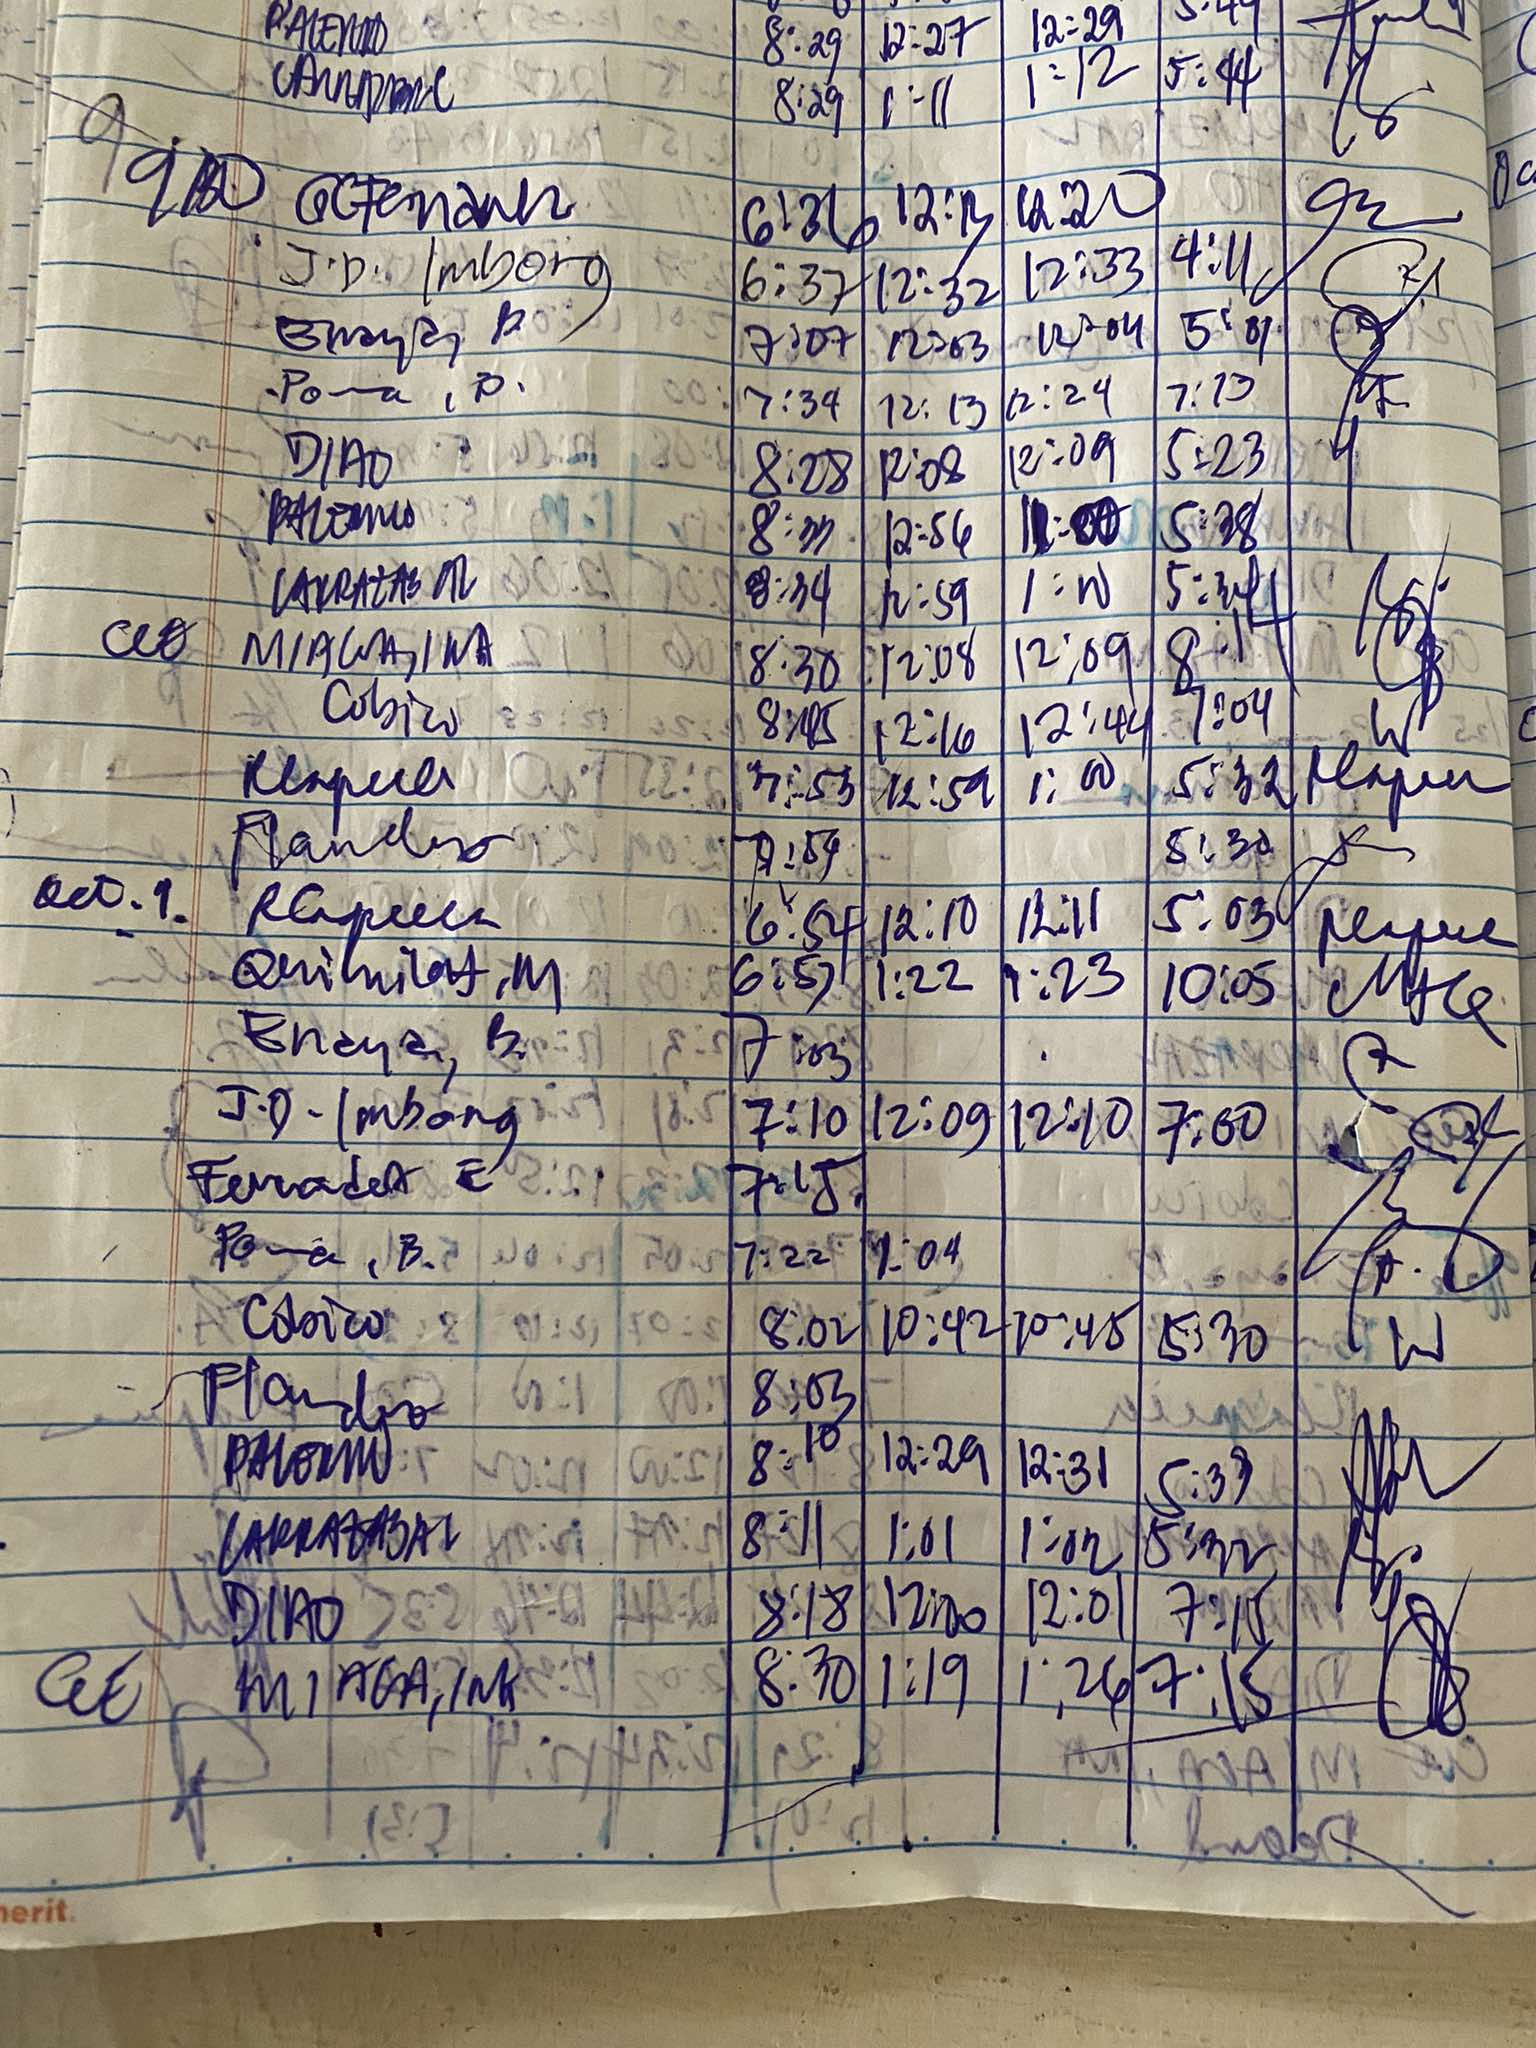 PALERMO 8:29 12:27 12:29 5:49
8:29 1:11 1:12 5:44
9/30 6:36 12:13 12:20
J.D. Imbong 6:37 12:32 12:33 4:11
Enaya, B. 7:07 12:03 12:04 5:01
Poma, B. 7:34 12:13 12:24 7:13
DIAO 8:28 12:08 12:09 5:23
PALERMO 8:33 12:56 5:38
LARRAZABAL 8:34 12:59 1:00 5:34
MIAGA, INA 8:30 12:08 12:09 8:14
Cobico 8:45 12:16 12:44 7:04
7:53 12:59 1:00 5:32
Flandro 7:59 5:30
Oct. 1. 6:54 12:10 12:11 5:03
Quimilat, M 6:57 1:22 1:23 10:05 MAQ
Enaya, B. 7:03
J.D. Imbong 7:10 12:09 12:10 7:00
Fernandez E 7:15
Poma, B. 7:22 1:04
Cobico 8:02 10:42 10:45 5:30
Flandro 8:03
PALERMO 8:10 12:29 12:31 5:33
LARRAZABAL 8:11 1:01 1:02 5:32
DIAO 8:18 12:00 12:01 7:15
MIAGA, INA 8:30 1:19 1:26 7:15
merit.